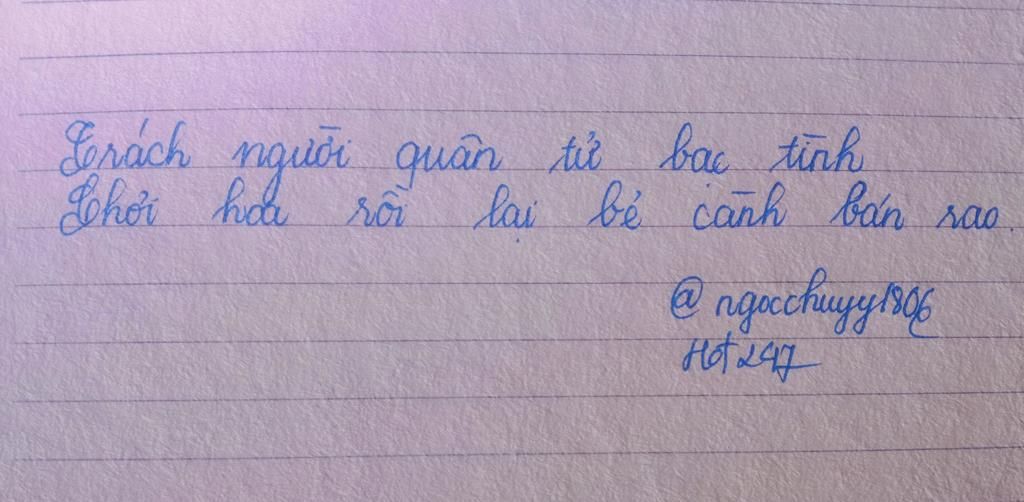 Trách người quân tử bạc tình
Chơi hoa rồi lại bẻ cành bán rao.
@ngocchuyy1806
Hot247